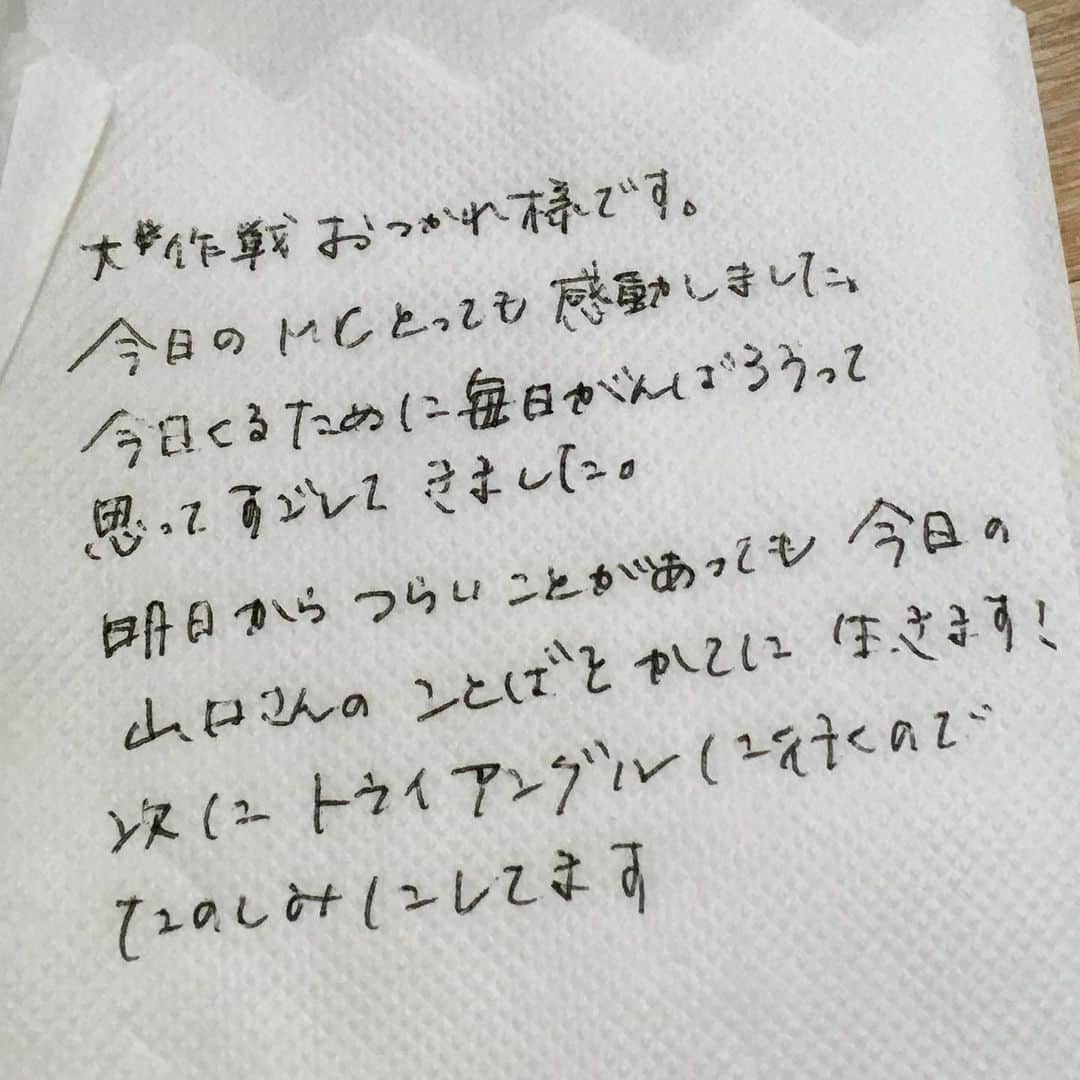 大作戦おつかれ様です。
今日のMCとっても感動しました。
今日くるために毎日がんばろうって
思ってすごしてきました。
明日からつらいことがあっても今日の
山口さんのことばをかてに生きます!
次にトライアングルに行くので
たのしみにしてます